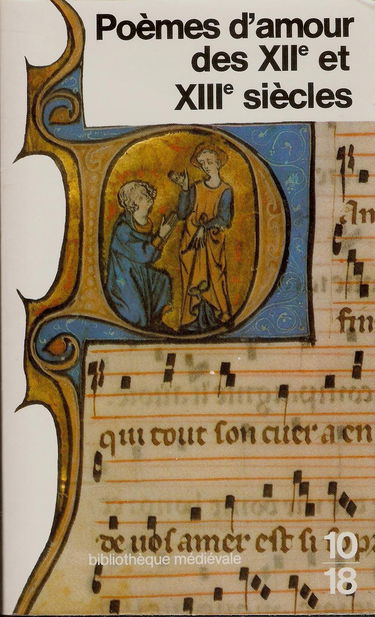 Poèmes d'amour
des XIIe et
XIIIe siècles
An
fin
qui tout son cuer a en
de vos amer est si
bibliothèque médiévale
10
18